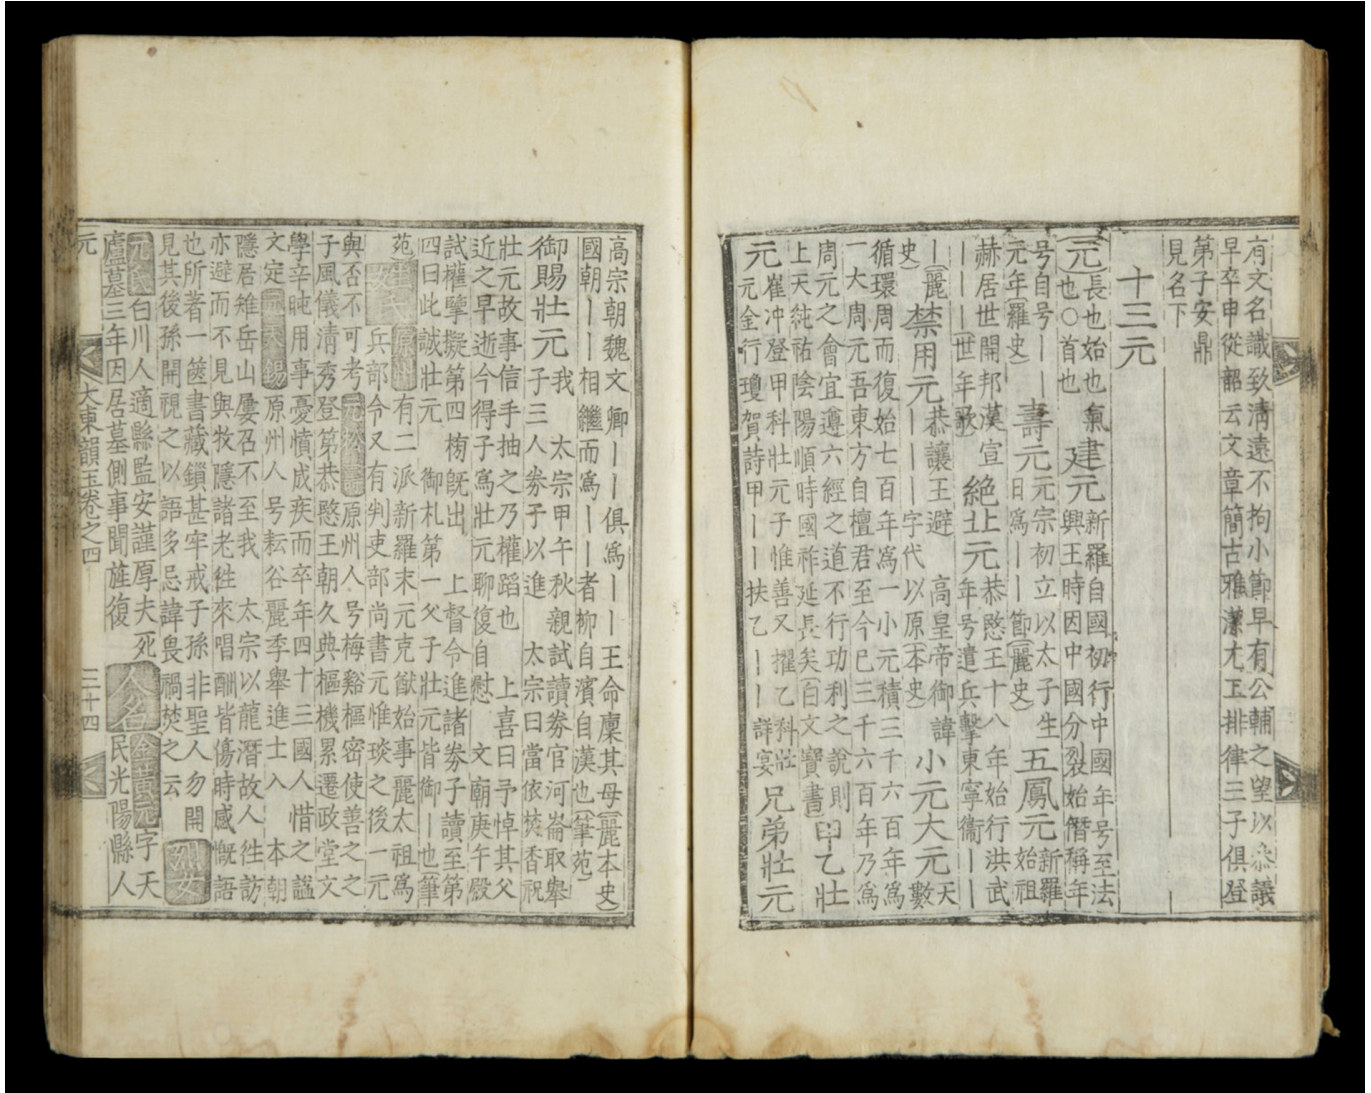 有文名識致清遠不拘小節早有公輔之望以叅議
早卒申從韶云文章簡古雅潔尤工排律三子俱登
第子安鼎
見名下
十三元
元
長也始也氣
也○首也
建元
新羅自國初行中國年号至法
興王時因中國分裂始僭稱年
号自号丨丨
元年(羅史)
壽元
元宗初立以太子生
日爲丨丨節(麗史)
五鳳元
新羅
始祖
赫居世開邦漢宣
丨丨丨世年歌
絶北元
恭愍王十八年始行洪武
年号遣兵擊東寧衞丨丨
丨(麗
史)
禁用元
恭讓王避 高皇帝御諱
丨丨丨字代以原(本史)
小元大元
天
數
循環周而復始七百年爲一小元積三千六百年爲
一大周元吾東方自檀君至今已三千六百年乃爲
周元之會宜遵六經之道不行功利之說則
上天純祐陰陽順時國祚延長矣(白文寶書)
甲乙壯
元
崔冲登甲科壯元子惟善又擢乙科壯
元金行瓊賀詩甲丨丨扶乙丨丨詳宴
兄弟壯元
高宗朝魏文卿丨丨俱爲丨丨王命廩其母(麗本史)
國朝丨丨相繼而爲丨丨者柳自濱自漢也(筆苑)
御賜壯元
我 太宗甲午秋親試讀券官河崙取舉
子三人券子以進 太宗曰當依焚香祝
壯元故事信手抽之乃權蹈也 上喜曰予悼其父
近之早逝今得子爲壯元聊復自慰 文廟庚午殿
試權擥擬第四榜旣出 上督令進諸券子讀至第
四曰此誠壯元 御札第一父子壯元皆御丨也筆
苑
姓氏
原州
有二派新羅末元克猷始事麗太祖爲
兵部令又有判吏部尚書元惟琰之後一元
與否不可考
元松壽
原州人号梅谿樞密使善之之
子風儀清秀登第恭愍王朝久典樞機累遷政堂文
學辛旽用事憂憤成疾而卒年四十三國人惜之謚
文定
元天錫
原州人号耘谷麗季舉進士入 本朝
隱居雉岳山屢召不至我 太宗以龍潛故人徃訪
亦避而不見與牧隱諸老徃來唱酬皆傷時感慨語
也所著一篋書藏鎖甚牢戒子孫非聖人勿開
見其後孫開視之以語多忌諱畏禍焚之云
烈女
元氏
白川人適縣監安謹厚夫死
廬墓三年因居墓側事聞旌復
人名
金黃元
字天
民光陽縣人
元
大東韻玉卷之四
三十四